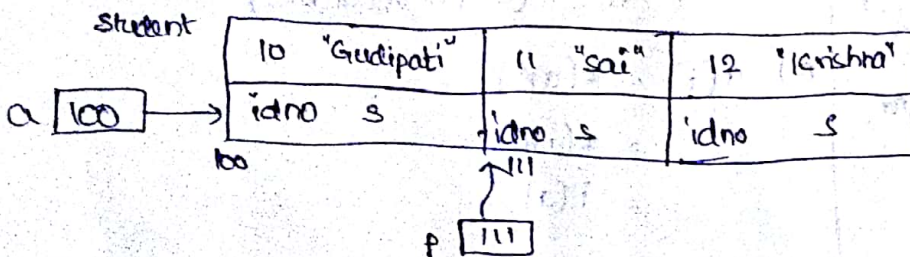 Student
10 "Gudipati" 11 "Sai" 12 "Krishna"
a 100 idno s idno s idno s
100 111
P 111